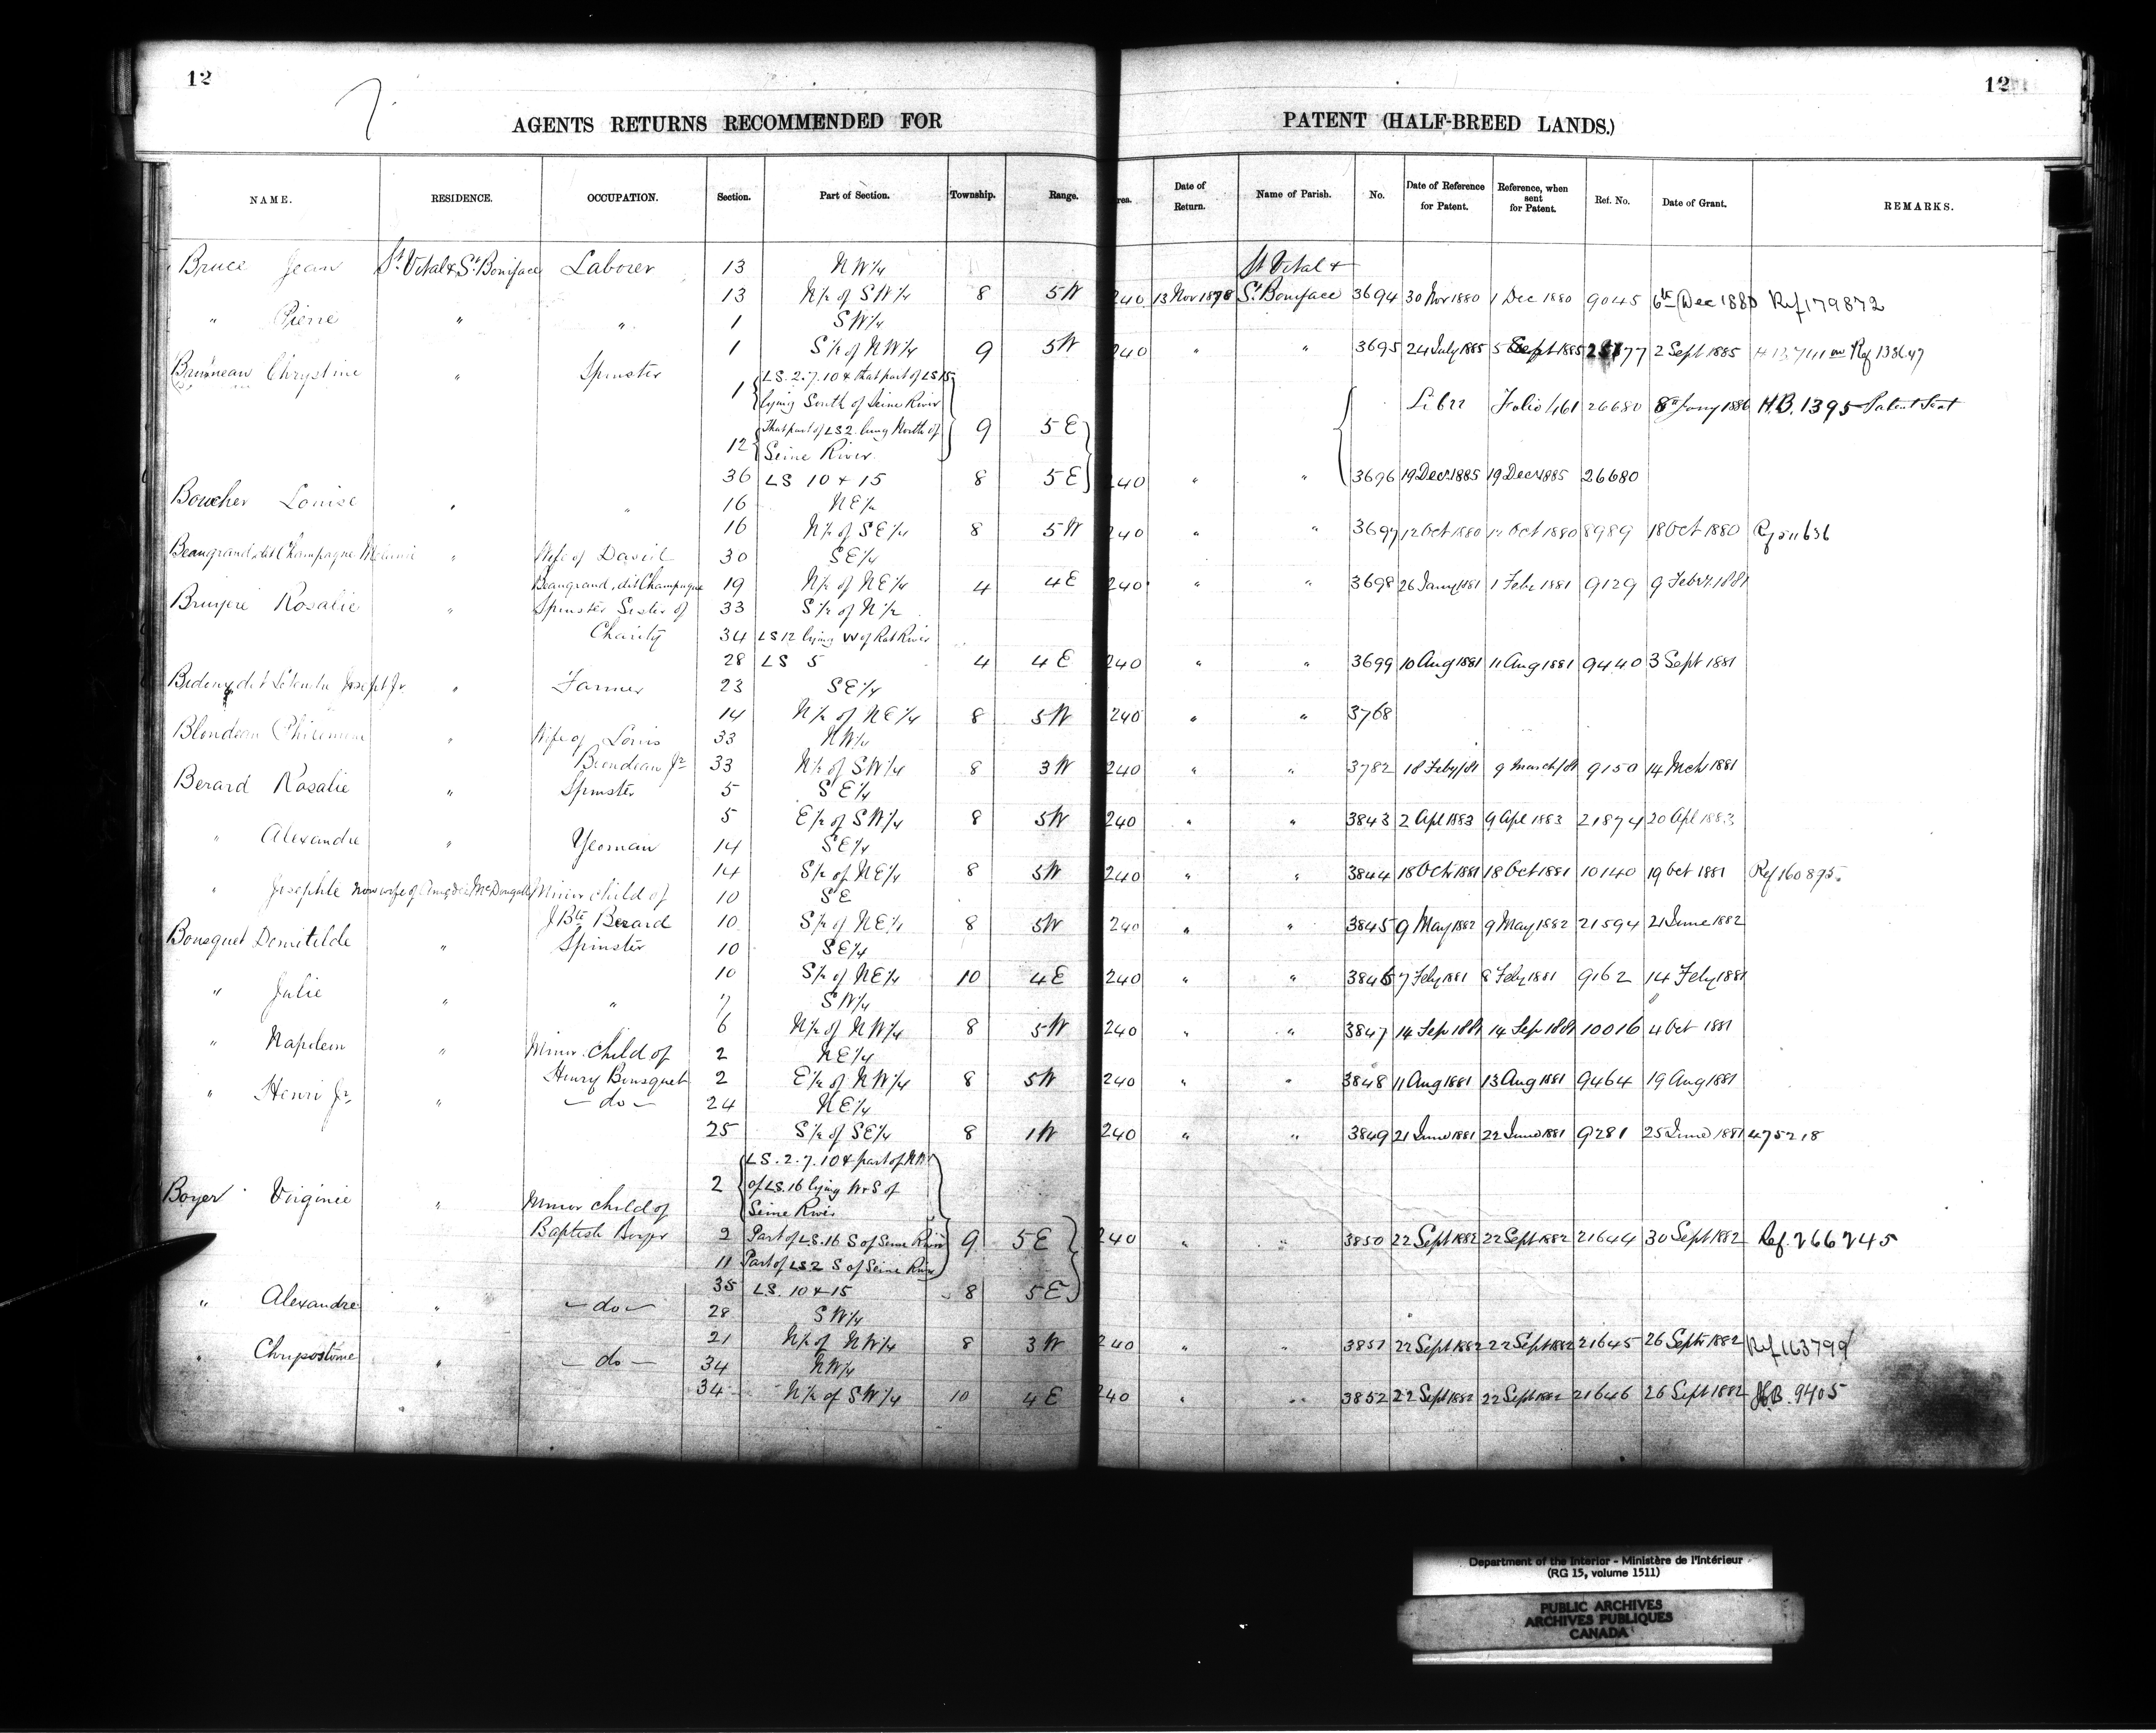 12
7.
12
AGENTS RETURNS RECOMMENDED FOR PATENT (HALF-BREED LANDS.)
NAME. RESIDENCE. OCCUPATION. Section. Part of Section. Township. Range. rea. Date of Return. Name of Parish. No. Date of Reference for Patent. Reference, when sent for Patent. Ref. No. Date of Grant. REMARKS.
Bruce Jean St. Vital & St. Boniface Laborer 13 NW¼ St Vital &
13 N½ of SW¼ 8 5W 240 13 Nov 1878 St. Boniface 3694 30 Nov 1880 1 Dec 1880 9045 6th Dec 1880 Ref 179872
" Pierre " " 1 SW¼
1 S½ of NW¼ 9 5W 240 " " 3695 24 July 1885 5 Sept 1885 77 2 Sept 1885 Ref 138647
Bruneau Chrystine " Spinster 1 LS. 2. 7. 10 & that part of LS 15
lying South of Seine River Libr Folio 461 26680 8th Jany 1886 H.B. 1395 Patent Sent
12 That part of LS 2 lying North of 9 5E
Seine River.
36 LS 10 & 15 8 5E 240 " " 3696 19 Decr 1885 19 Decr 1885 26680
Boucher Louise " " 16 NE¼
16 N½ of SE¼ 8 5W 240 " " 3697 12 Oct 1880 Oct 1880 8989 18 Oct 1880
Beaugrand dit Champagne Melanie " Wife of David 30 SE¼
Beaugrand, dit Champagne 19 N½ of NE¼ 4 4E 240 " " 3698 26 Jany 1881 1 Feby 1881 9129 9 Feby. 1881
Bruyere Rosalie " Spinster Sister of 33 S½ of N½
Charity 34 LS 12 lying W of Rat River
28 LS 5 4 4E 240 " " 3699 10 Aug 1881 11 Aug 1881 9440 3 Sept 1881
Joseph Jr. " Farmer 23 SE¼
14 N½ of NE¼ 8 5W 240 " " 3768
Blondeau Philomene " Wife of Louis 33 NW¼
Blondeau Jr 33 N½ of SW¼ 8 3W 240 " " 3782 18 Feby/81 9 March/81 9150 14 Mch 1881
Berard Rosalie " Spinster 5 SE¼
5 E½ of SW¼ 8 5W 240 " " 3843 2 Apl 1883 9 Apl 1883 21874 20 Apl 1883
" Alexandre " Yeoman 14 SE¼
14 S½ of NE¼ 8 5W 240 " " 3844 18 Oct 1881 18 Oct 1881 10140 19 Oct 1881 Ref 160895.
" Josephte now wife of Amedée McDougall Minor child of 10 SE
J Bte Berard 10 S½ of NE¼ 8 5W 240 " " 3845 9 May 1882 9 May 1882 21594 21 June 1882
Bousquet Domitilde " Spinster 10 SE¼
10 S½ of NE¼ 10 4E 240 " " 3846 7 Feby 1881 8 Feby 1881 9162 14 Feby 1881
" Julie " " 7 SW¼
6 N½ of NW¼ 8 5W 240 " " 3847 14 Sep 1881 14 Sep 1881 10016 4 Oct 1881
" Napoleon " Minor child of 2 NE¼
Henry Bousquet 2 E½ of NW¼ 8 5W 240 " " 3848 11 Aug 1881 13 Aug 1881 9464 19 Aug 1881
" Henri Jr. " — do — 24 NE¼
25 S½ of SE¼ 8 1W 240 " " 3849 21 June 1881 22 June 1881 9281 25 June 1881 475218
LS. 2. 7. 10 & part of
Boyer Virginie " Minor child of 2 of LS. 16 lying W & S of
Seine River
Baptiste Boyer 2 Part of LS. 16 S of Seine River 9 5E 240 " " 3850 22 Sept 1882 22 Sept 1882 21644 30 Sept 1882 Ref. 266245
11 Part of LS 2 S of Seine River
35 LS. 10 & 15 8 5E
" Alexandre " — do — 28 SW¼
21 N½ of NW¼ 8 3W 240 " " 3851 22 Sept 1882 22 Sept 1882 21645 26 Sept 1882 Ref 163799
" Chrysostome " — do — 34 NW¼
34 N½ of SW¼ 10 4E 240 " " 3852 22 Sept 1882 22 Sept 1882 21646 26 Sept 1882 H.B. 9405
Department of the Interior - Ministère de l'Intérieur
(RG 15, volume 1511)
PUBLIC ARCHIVES
ARCHIVES PUBLIQUES
CANADA